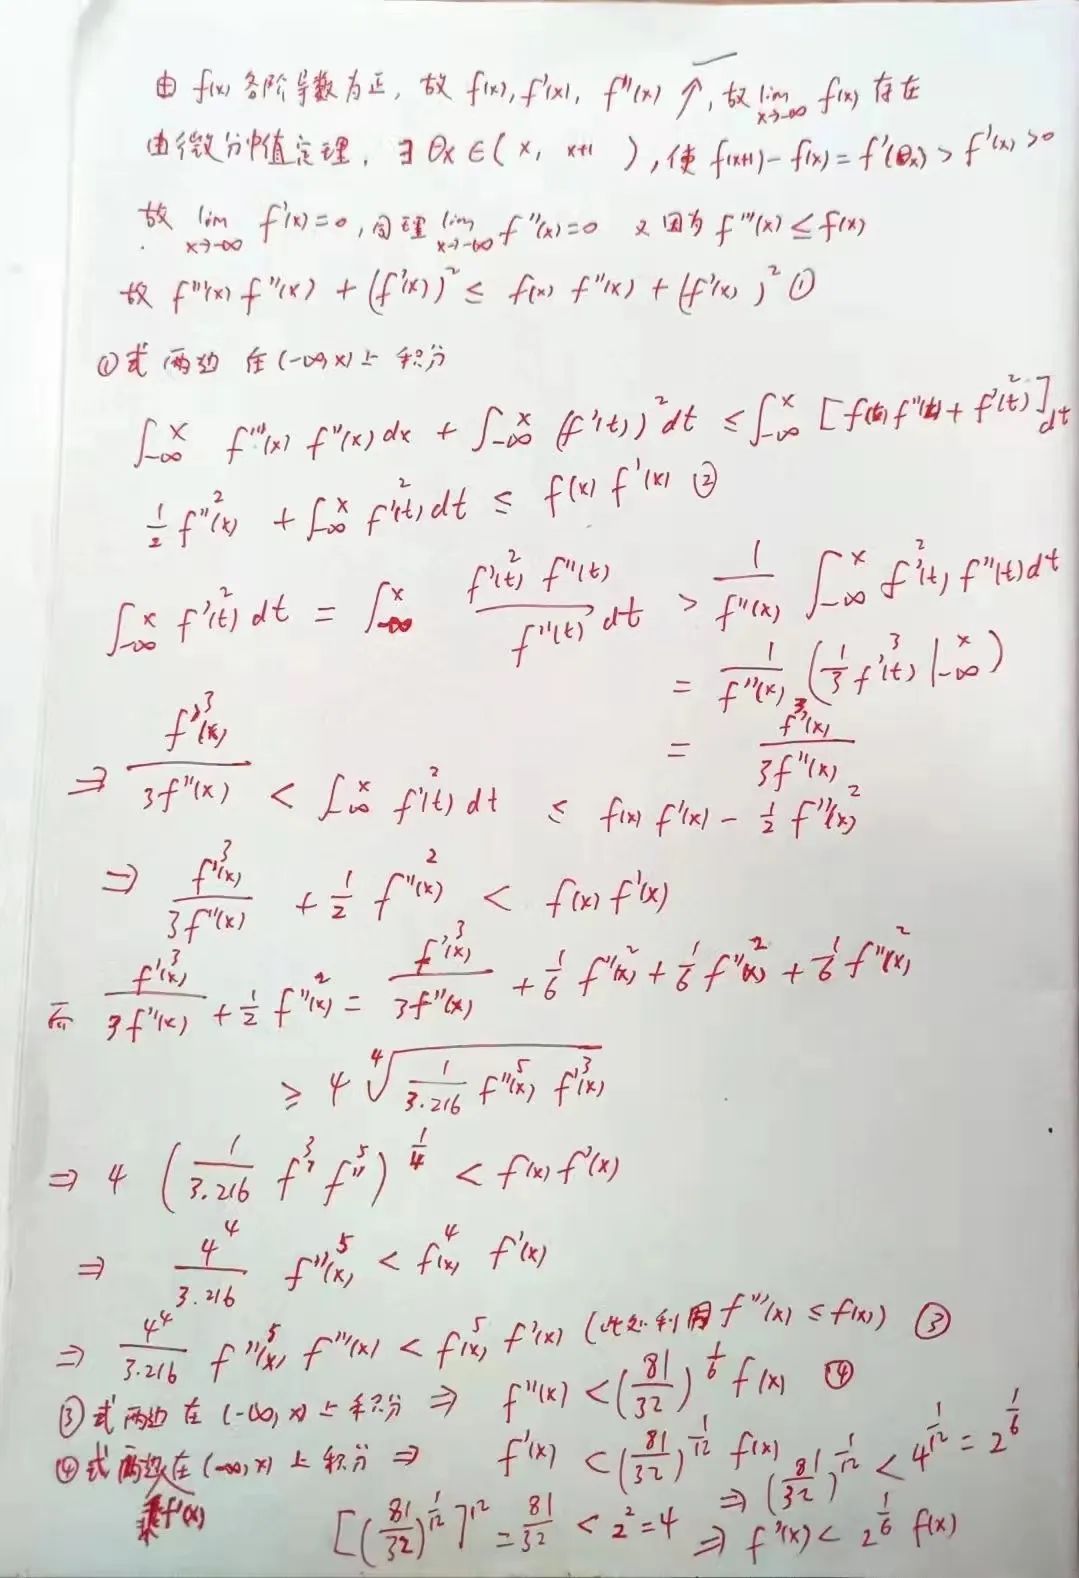 由 f(x) 各阶导数为正, 故 f(x), f'(x), f''(x) ↑, 故 lim x→-∞ f(x) 存在
由微分中值定理, ∃ θx ∈ ( x, x+1 ), 使 f(x+1) - f(x) = f'(θx) > f'(x) > 0
故 lim x→-∞ f'(x) = 0, 同理 lim x→-∞ f''(x) = 0 又因为 f'''(x) ≤ f(x)
故 f'''(x) f''(x) + (f'(x))² ≤ f(x) f''(x) + (f'(x))² ①
①式 两边 在 (-∞, x) 上 积分
∫_{-∞}^{x} f'''(x) f''(x) dx + ∫_{-∞}^{x} (f'(t))² dt ≤ ∫_{-∞}^{x} [f(t) f''(t) + f'²(t)] dt
1/2 f''²(x) + ∫_{-∞}^{x} f'²(t) dt ≤ f(x) f'(x) ②
∫_{-∞}^{x} f'²(t) dt = ∫_{-∞}^{x} f'²(t) f''(t) / f''(t) dt > 1/f''(x) ∫_{-∞}^{x} f'²(t) f''(t) dt
= 1/f''(x) (1/3 f'³(t) |_{-∞}^{x})
= f'³(x) / 3f''(x)
⇒ f'³(x) / 3f''(x) < ∫_{-∞}^{x} f'²(t) dt ≤ f(x) f'(x) - 1/2 f''²(x)
⇒ f'³(x) / 3f''(x) + 1/2 f''²(x) < f(x) f'(x)
而 f'³(x) / 3f''(x) + 1/2 f''²(x) = f'³(x) / 3f''(x) + 1/6 f''²(x) + 1/6 f''²(x) + 1/6 f''²(x)
≥ 4 ⁴√(1/3·216 f''⁵(x) f'³(x))
⇒ 4 (1/3·216 f'³ f''⁵)^{1/4} < f(x) f'(x)
⇒ 4⁴/3·216 f''⁵(x) < f⁴(x) f'(x)
⇒ 4⁴/3·216 f''⁵(x) f'''(x) < f⁵(x) f'(x) (此处利用 f'''(x) ≤ f(x)) ③
③式 两边 在 (-∞, x) 上 积分 ⇒ f''(x) < (81/32)^{1/6} f(x) ④
④式 两边 在 (-∞, x) 上 积分 ⇒ f'(x) < (81/32)^{1/12} f(x) ⇒ (81/32)^{1/12} < 4^{1/12} = 2^{1/6}
乘f'(x)
[(81/32)^{1/12}]^{12} = 81/32 < 2² = 4 ⇒ f'(x) < 2^{1/6} f(x)